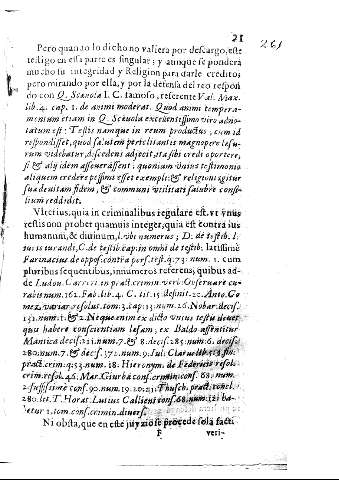 21
261
Pero quando lo dicho no valiera por descargo, este
testigo en esta parte es singular; y aunque se pondera
mucho su integridad y Religion para darle credito;
pero mirando por ella, y por la defensa del reo respon
do con Q. Scæuola I. C. famoso, referente Val. Max.
lib. 4. cap. 1. de animi moderat. Quod animi tempera-
mentum etiam in Q. Scæuola excellentissimo viro adno-
tatum est: Testis namque in reum productus, cum id
respondisset, quod salutem periclitantis magnopere læsu-
rum videbatur, discedens adjecit, ita sibi credi oportere,
si & alij idem asseuerassent, quoniam vnius testimonio
aliquem credere pessimi esset exempli: & religioni igitur
sua debitam fidem, & communi vtilitati salubre consi-
lium reddidit.
Vlterius, quia in criminalibus regulare est, vt vnus
testis non probet quamuis integer, quia est contra ius
humanum, & diuinum, l. vbi numerus; D. de testib. l.
iuris iurandi, C. de testib. cap. in omni de testib; latissimè
Farinacius de opposit. contra pers. test. q. 73. num. 1. cum
pluribus sequentibus, innumeros referens, quibus ad-
de Ludou. in pract. crimin. veri.
num. 162. Fab. lib. 4. C. tit. 15 definit. 20. Anto. Go
mez variar. resolut. tom. 3. cap. 13. num. 26. Nobar. decis.
132. num. 1. & 2. Neque enim ex dicto vnius testis
qui habere conscientiam læsam; ex Baldo assentitur
Mantica decis. 221. num. 7. & 8. decis. 285. num. 6. decis.
280. num. 7. & decis. 372. num. 9. Iul. Clar.
pract. crim. q. 53. num. 18. Hieronym. de Federicis resol.
crim. resol. 46. Mar. Giurba cons. crim. cons. 68. num.
2. fusissime cons. 90. num. 19. 20. 21. Thusch. pract. concl.
280. let. T. Horat. Lutius Callieni cons. 68. num. 12. ha-
betur 2. tom. cons. crimin. diuers.
Ni obsta, que en este juyzio se procede sola facti
F veri-